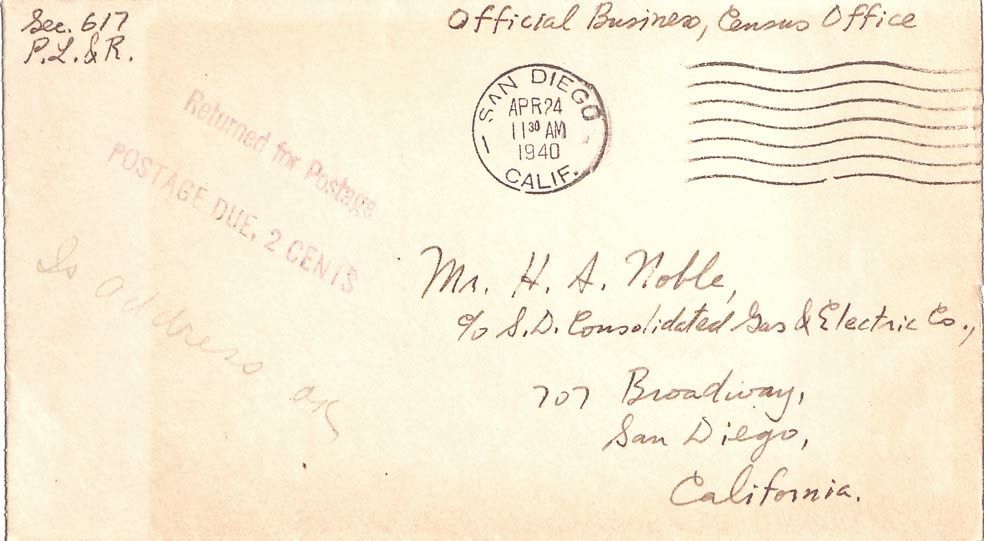 Sec. 617
P.L. & R.
Official Business, Census Office
SAN DIEGO
APR 24
11 30 AM
1940
CALIF.
Returned for Postage
POSTAGE DUE, 2 CENTS
Is address ok
Mr. H. A. Noble,
c/o S.D. Consolidated Gas & Electric Co.,
707 Broadway,
San Diego,
California.